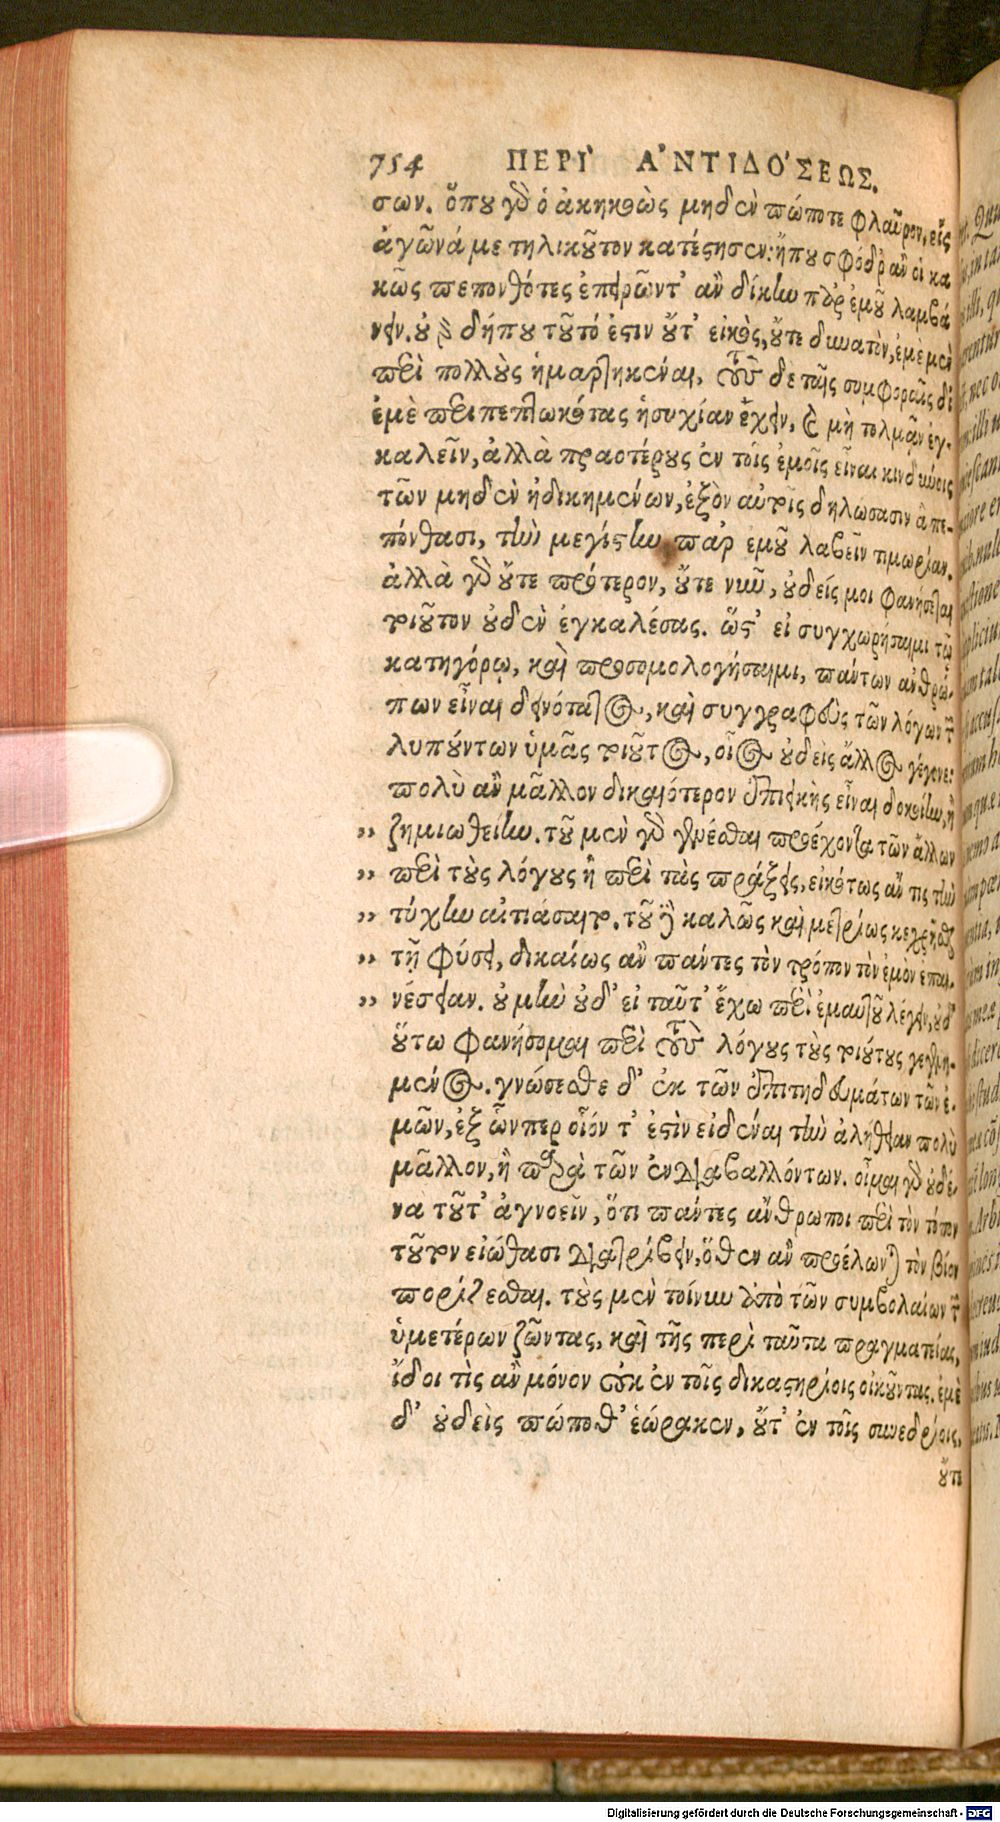 754 ΠΕΡῚ ἈΝΤΙΔΌΣΕΩΣ.
σων. ὅπου γὰρ ὁ ἀκηκοὼς μηδὲν πώποτε φλαῦρον, εἰς
ἀγῶνά με τηλικοῦτον κατέστησεν: ἤπου σφόδρ᾽ ἂν οἱ κα
κῶς πεπονθότες ἐπειρῶντ᾽ ἂν δίκην παρ᾽ ἐμοῦ λαμβά
νειν. οὐ γὰρ δήπου τοῦτό ἐστιν οὔτ᾽ εἰκὸς, οὔτε δυνατὸν, ἐμὲ μὲν
περὶ πολλοὺς ἡμαρτηκέναι, τοὺς δὲ ταῖς συμφοραῖς δι᾽
ἐμὲ περιπεπτωκότας ἡσυχίαν ἔχειν, καὶ μὴ τολμᾶν ἐγ-
καλεῖν, ἀλλὰ πραοτέρους ἐν τοῖς ἐμοῖς εἶναι κινδύνοις
τῶν μηδὲν ἠδικημένων, ἐξὸν αὐτοῖς δηλώσασιν ἃ πε-
πόνθασι, τὴν μεγίστην παρ᾽ ἐμοῦ λαβεῖν τιμωρίαν.
ἀλλὰ γὰρ οὔτε πρότερον, οὔτε νῦν, οὐδείς μοι φανήσεται
τοιοῦτον οὐδὲν ἐγκαλέσας. ὥστ᾽ εἰ συγχωρήσαιμι τῷ
κατηγόρῳ, καὶ προσομολογήσαιμι, πάντων ἀνθρώ-
πων εἶναι δεινότατος, καὶ συγγραφεὺς τῶν λόγων τῶν
λυπούντων ὑμᾶς τοιοῦτος, οἷος οὐδεὶς ἄλλος γέγονε:
πολὺ ἂν μᾶλλον δικαιότερον ἐπιεικὴς εἶναι δοκοίην, ἢ
„ ζημιωθείην. τοῦ μὲν γὰρ γενέσθαι προέχοντα τῶν ἄλλων
„ περὶ τοὺς λόγους ἢ περὶ τὰς πράξεις, εἰκότως ἄν τις τὴν
„ τύχην αἰτιάσαιτο. τοῦ δὲ καλῶς καὶ μετρίως κεχρῆσθαι
„ τῇ φύσει, δικαίως ἂν πάντες τὸν τρόπον τὸν ἐμὸν ἐπαι-
„ νέσειαν. οὐ μὴν οὐδ᾽ εἰ ταῦτ᾽ ἔχω περὶ ἐμαυτοῦ λέγειν, οὐδ᾽
οὕτω φανήσομαι περὶ τοὺς λόγους τοὺς τοιούτους γεγενη-
μένος. γνώσεσθε δ᾽ ἐκ τῶν ἐπιτηδευμάτων τῶν ἐ-
μῶν, ἐξ ὧνπερ οἷόν τ᾽ ἐστὶν εἰδέναι τὴν ἀλήθειαν πολὺ
μᾶλλον, ἢ παρὰ τῶν ἐνδιαβαλλόντων. οἶμαι γὰρ οὐδέ-
να τοῦτ᾽ ἀγνοεῖν, ὅτι πάντες ἄνθρωποι περὶ τὸν τόπον
τοῦτον εἰώθασι διατρίβειν, ὅθεν ἂν προέλωνται τὸν βίον
πορίζεσθαι. τοὺς μὲν τοίνυν ἀπὸ τῶν συμβολαίων τῶν
ὑμετέρων ζῶντας, καὶ τῆς περὶ ταῦτα πραγματείας,
ἴδοι τὶς ἂν μόνον οὐκ ἐν τοῖς δικαστηρίοις οἰκοῦντας. ἐμὲ
δ᾽ οὐδεὶς πώποθ᾽ ἑώρακεν, οὔτ᾽ ἐν τοῖς συνεδρίοις,
οὔτε
Digitalisierung gefördert durch die Deutsche Forschungsgemeinschaft - DFG